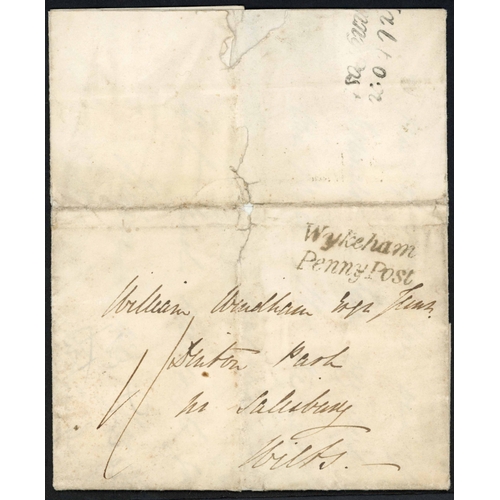 Wykeham
Penny Post
William Windham Esqr Junr
Dinton Park
nr Salisbury
Wilts.